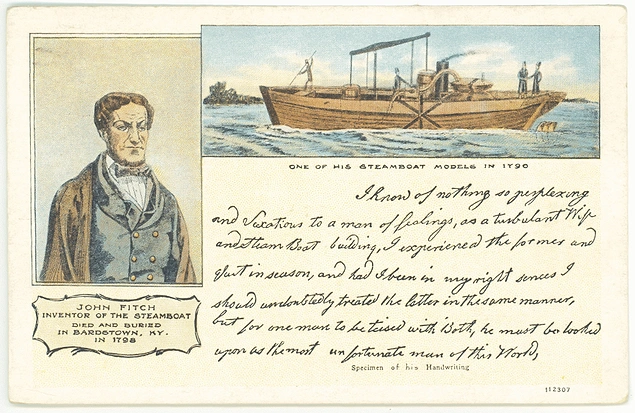 ONE OF HIS STEAMBOAT MODELS IN 1790
I know of nothing so perplexing
and vexatious to a man of fealings, as a turbulant Wife
and Steam Boat building, I experienced the former and
quit in season, and had I been in my right sences I
should undoubtedly treated the latter in the same manner,
but for one man to be teised with Both, he must be looked
upon as the most unfortunate man of this World,
Specimen of his Handwriting
JOHN FITCH
INVENTOR OF THE STEAMBOAT
DIED AND BURIED
IN BARDSTOWN, KY.
IN 1798
112307